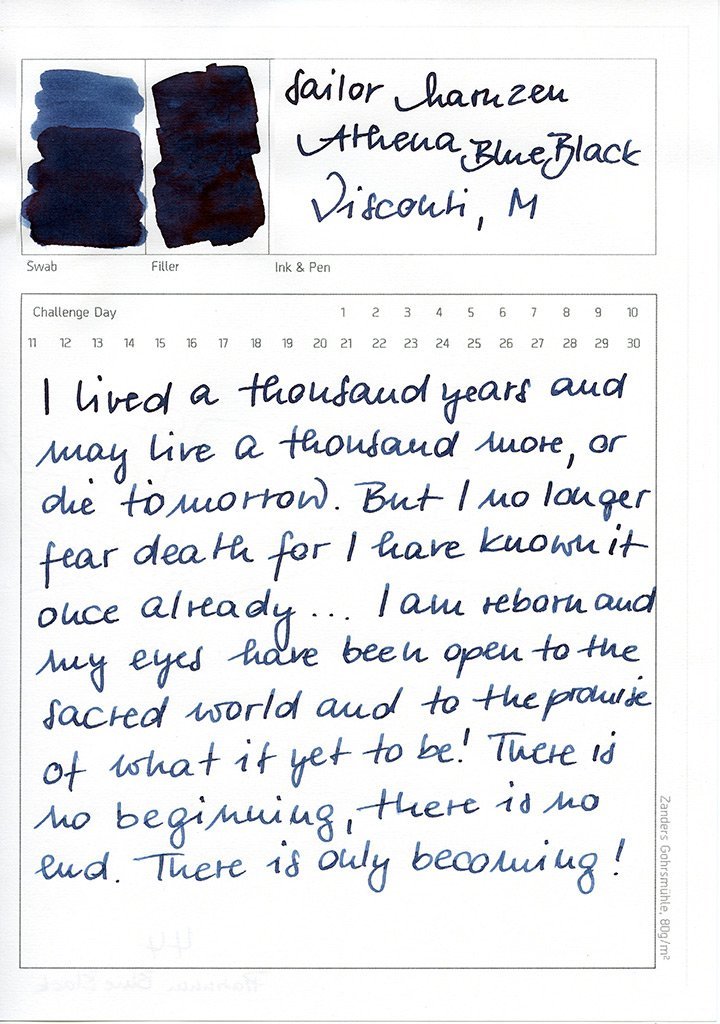 Sailor
Athena BlueBlack
Visconti, M
Swab Filler Ink & Pen
Challenge Day 1 2 3 4 5 6 7 8 9 10
11 12 13 14 15 16 17 18 19 20 21 22 23 24 25 26 27 28 29 30
I lived a thousand years and
may live a thousand more, or
die tomorrow. But I no longer
fear death for I have known it
once already... I am reborn and
my eyes have been open to the
sacred world and to the promise
of what is yet to be! There is
no beginning, there is no
end. There is only becoming!
Zanders Gohrsmühle, 80g/m²